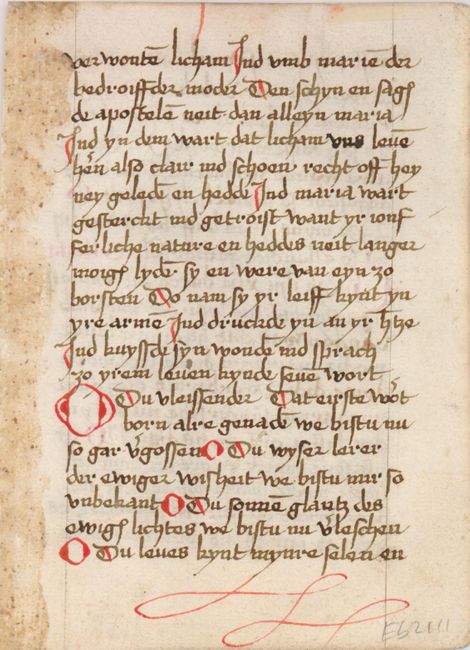 verwontē licham Ind vmb mariē der
bedroiffder moder Den schyn en sagē
de apostelē neit dan alleyn maria
Ind yn dem wart dat licham vns leuē
herē also clair ind schoen recht off hey
ney geledē en hedde Ind maria wart
gesterckt ind getroist want yr ionf
ferliche nature en heddes neit langer
moigē lydē sy en were van eyn zo
borsten Do nam sy yr leiff kynt yn
yre armē Ind druckde yn an yr htze
Ind kuyssde syn wondē ind sprach
zo yrem leuen kynde seuē wort
O Du vleissender Dat eirste wort
born alre genadē we bistu nu
so gar vgossen O Du wyser lerer
der ewiger wisheit we bistu mir so
vnbekant O Du sonnē glantz des
ewigē lichtes we bistu nu vleschen
O Du leues kynt mynre selen en